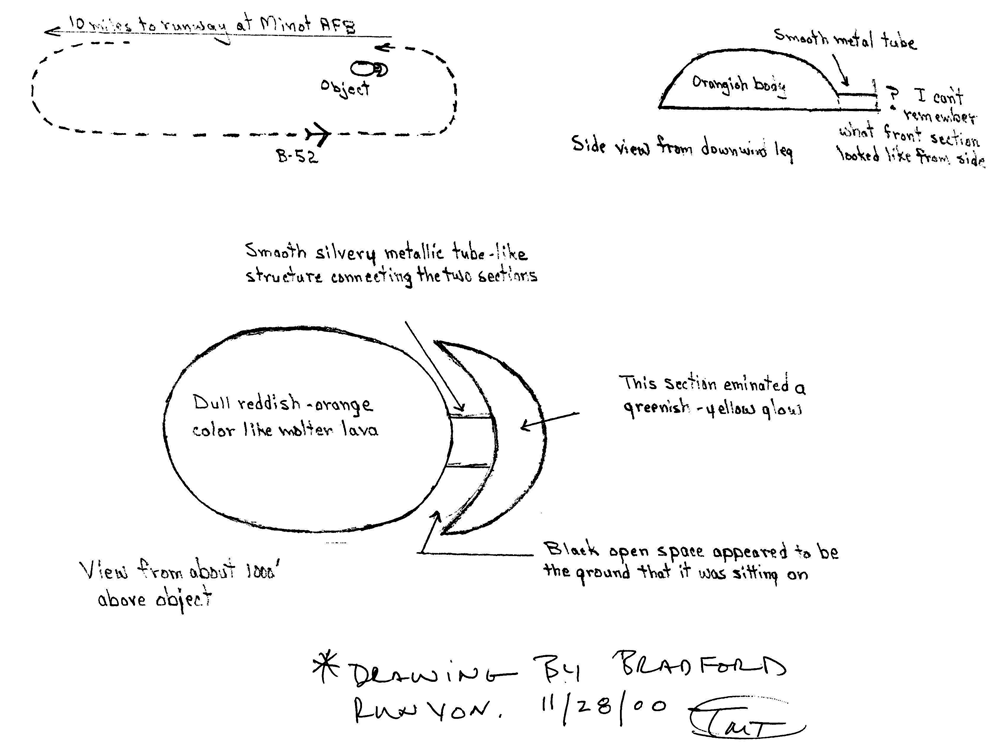 10 miles to runway at Minot AFB
Object
B-52
Smooth metal tube
Orangish body
? I can't
remember
what front section
looked like from side
Side view from downwind leg
Smooth silvery metallic tube-like
structure connecting the two sections
Dull reddish-orange
color like molter lava
This section eminated a
greenish-yellow glow
Black open space appeared to be
the ground that it was sitting on
View from about 1000'
above object
* DRAWING BY BRADFORD
RUNYON. 11/28/00 TMT